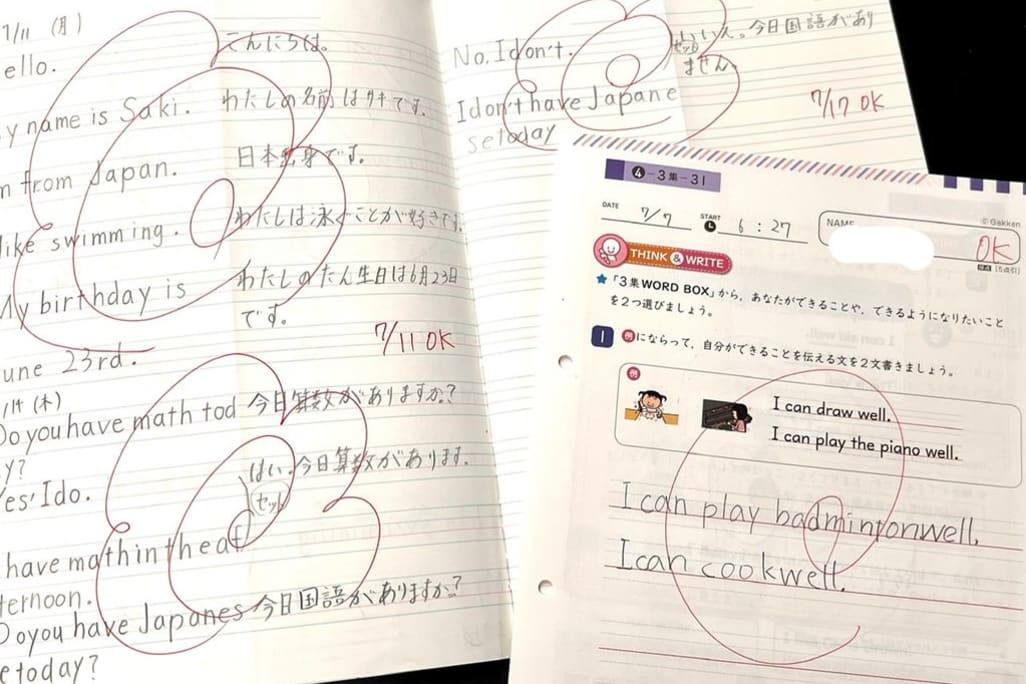 7/11 (月)
ello.
こんにちは。
y name is Saki.
わたしの名前はサキです。
from Japan.
日本出身です。
like swimming.
わたしは泳ぐことが好きです
My birthday is
わたしのたん生日は6月23日
です。
une 23rd.
7/11 OK
/14 (木)
Do you have math tod
今日算数がありますか?
y?
はい、今日算数があります。
es, I do.
セット
have math in the af
ternoon.
Do you have Japanes
今日国語がありますか?
e today?
No, I don't.
いいえ。今日国語があり
セット
ません。
I don't have Japane
se today
7/17 OK
4-3集-31
DATE 7/7 START 6:27
NAME
© Gakken
OK
THINK & WRITE
★「3集WORD BOX」から，あなたができることや，できるようになりたいこと
を2つ選びましょう。
1 例にならって，自分ができることを伝える文を2文書きましょう。
例
I can draw well.
I can play the piano well.
I can play badminton well.
I can cook well.